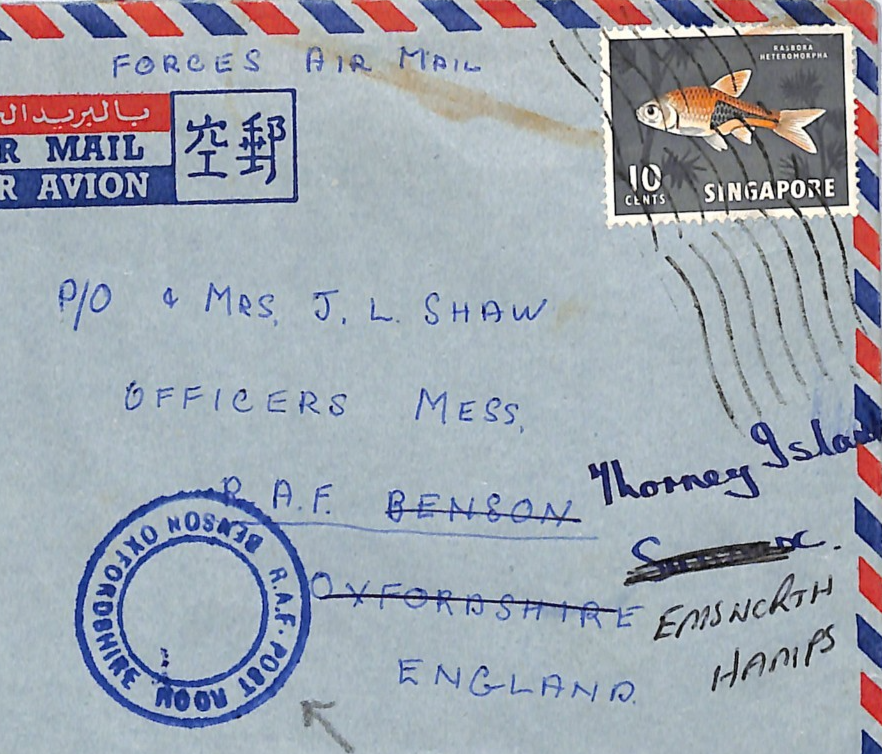 FORCES AIR MAIL
RASBORA
HETEROMORPHA
10
CENTS
SINGAPORE
بالبريد
R MAIL
R AVION
空郵
P/O & MRS. J. L. SHAW
OFFICERS MESS,
R.A.F. BENSON
Thorney Island
OXFORDSHIRE
EMSWORTH
HANTS
ENGLAND.
R.A.F. POST ROOM BENSON OXFORDSHIRE